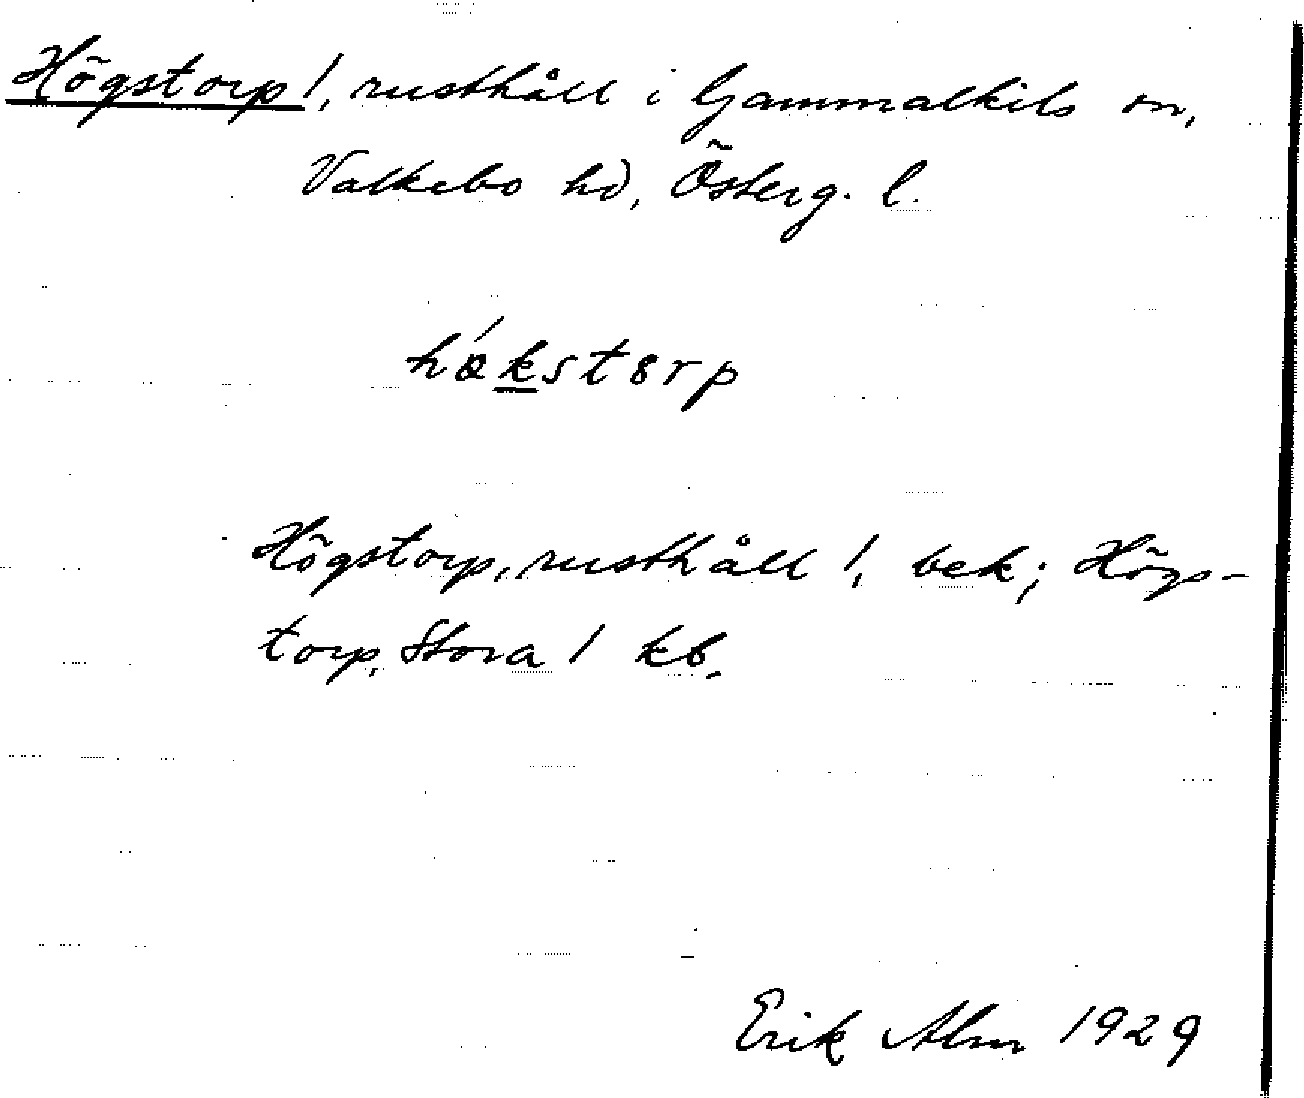 Högstorp 1, rusthåll i Gammalkils sn,
Valkebo hd, Österg. l.
hǿkstɞrp
Högstorp, rusthåll 1, bek; Högs-
torp, Stora 1 kb.
Erik Alm 1929